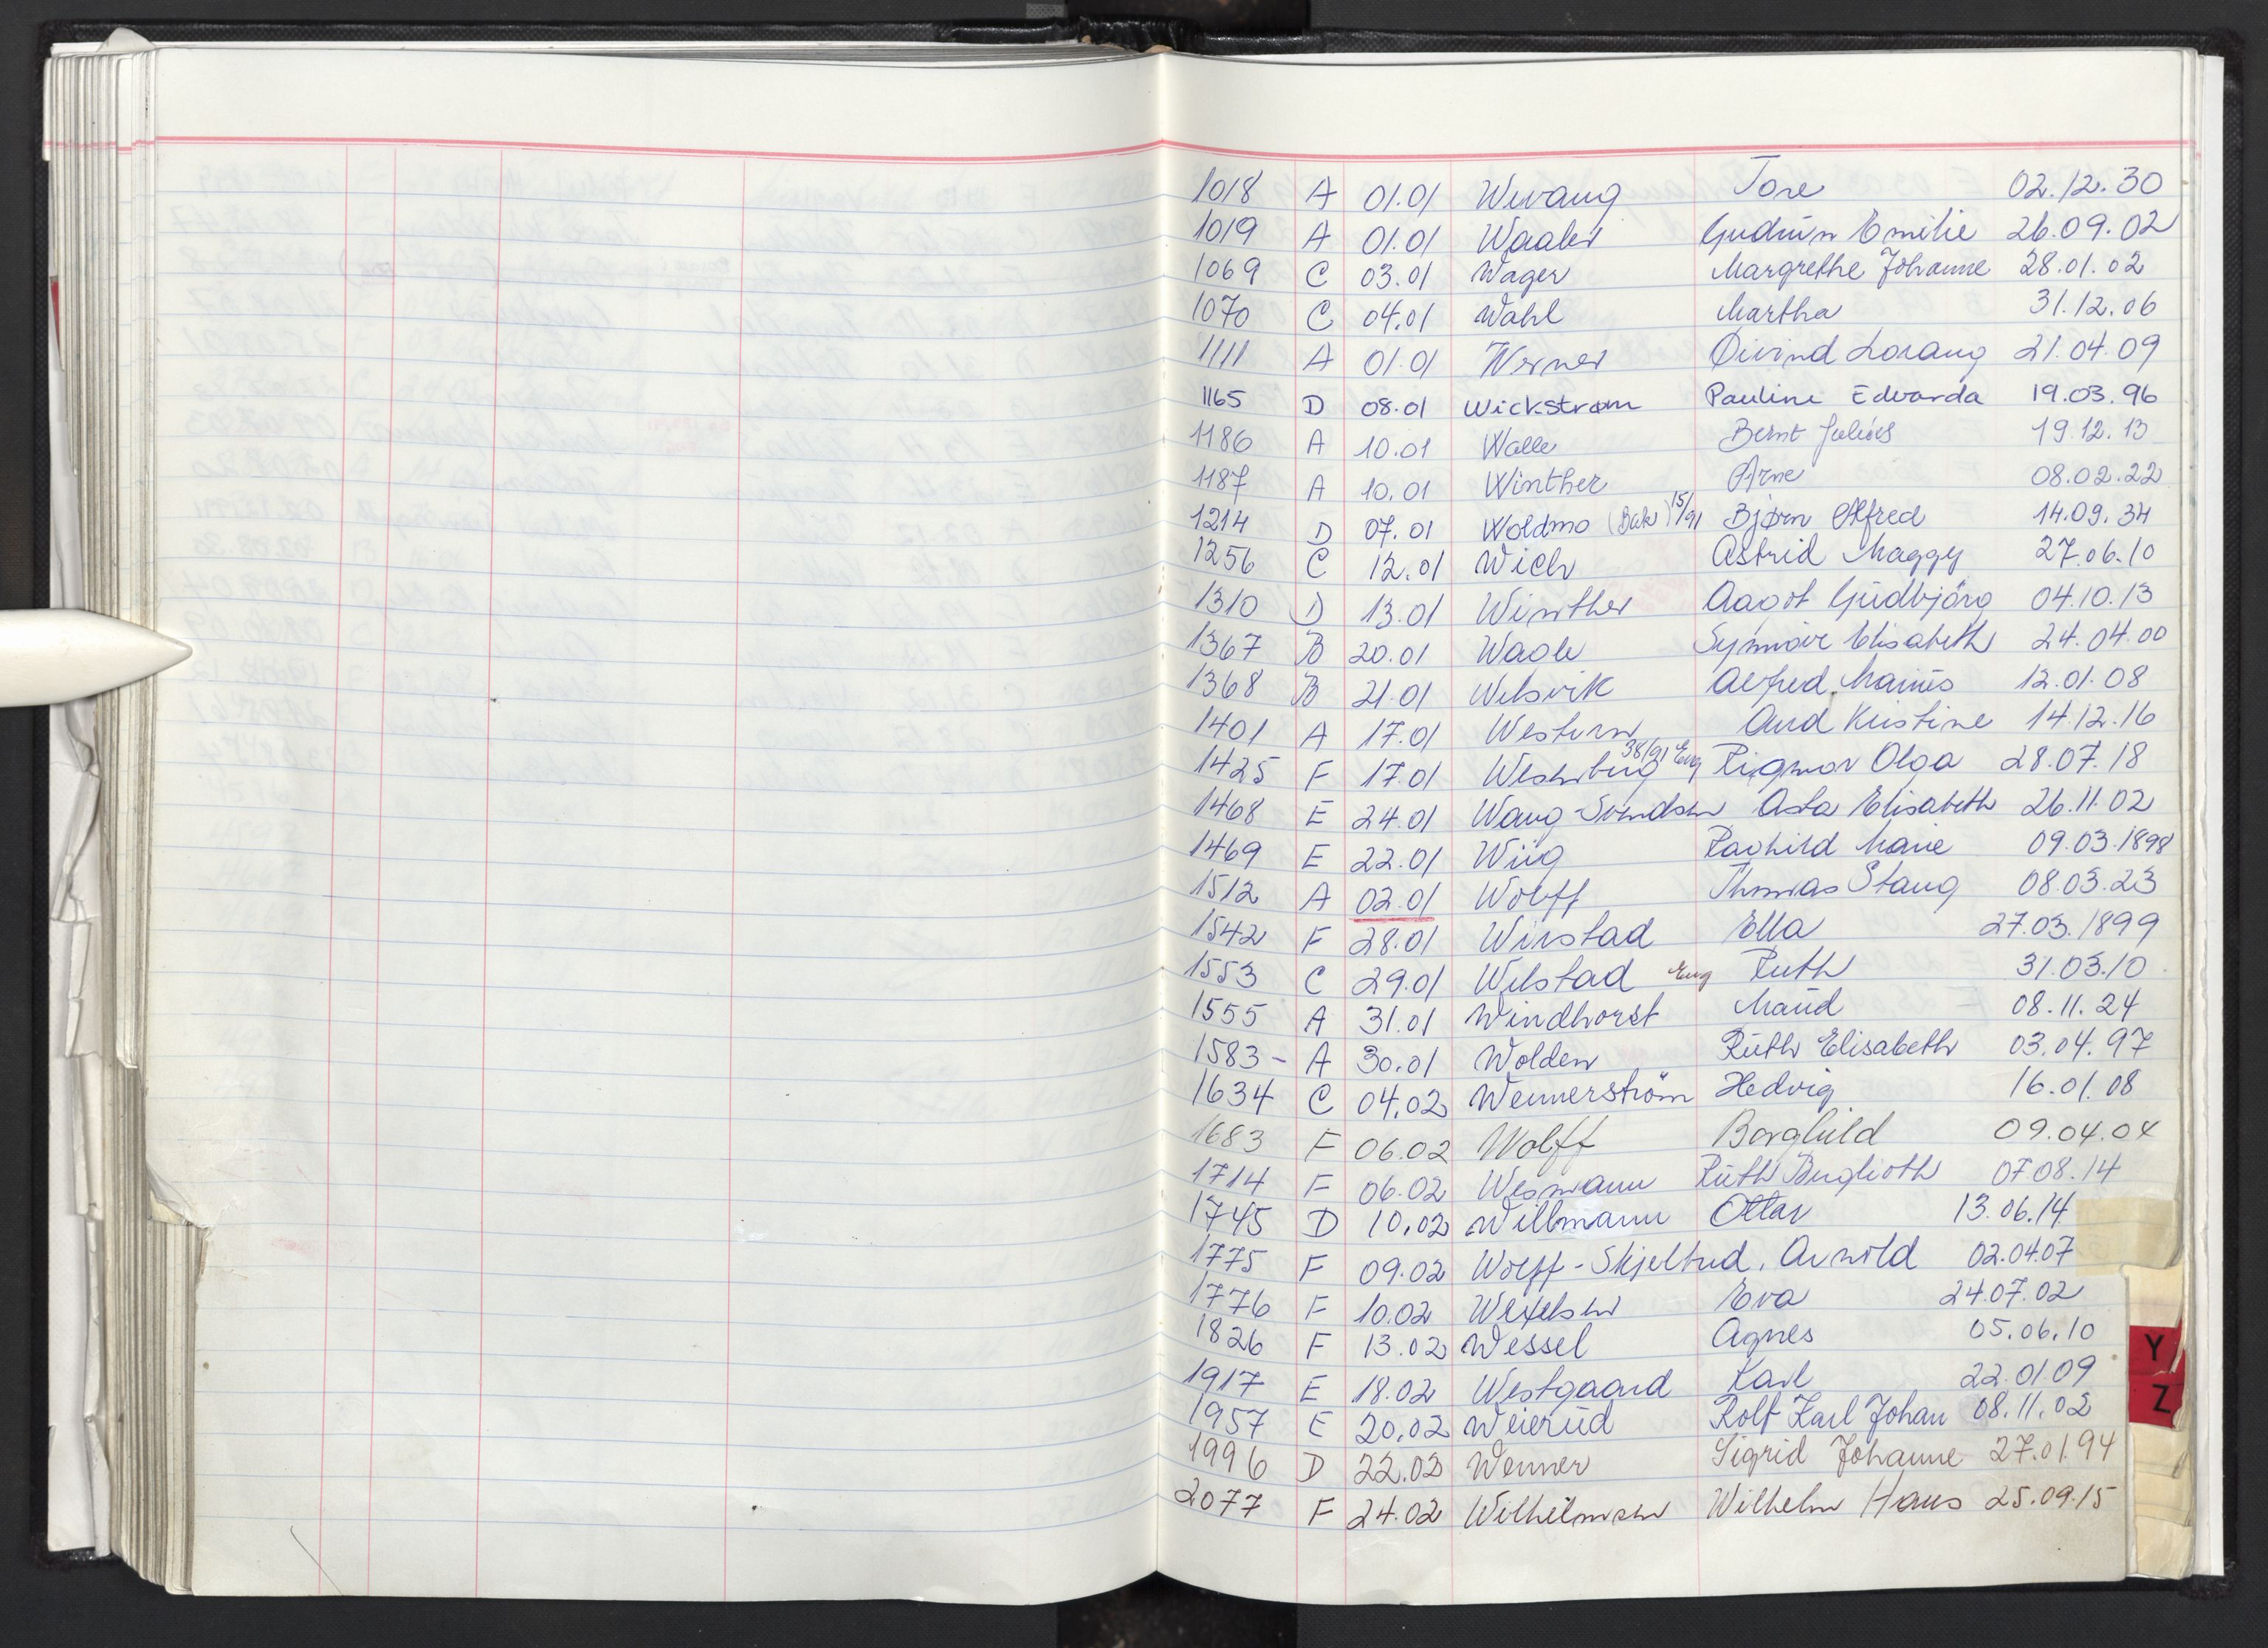 1018 A 01.01 Wevang Tore 02.12.30
1019 A 01.01 Waaler Gudrun Emilie 26.09.02
1069 C 03.01 Wager Margrethe Johanne 28.01.02
1070 C 04.01 Wahl Martha 31.12.06
1111 A 01.01 Werner Øivind Lorang 21.04.09
1165 D 08.01 Wickstrøm Pauline Edvarda 19.03.96
1186 A 10.01 Walle Bernt Julius 19.12.13
1187 A 10.01 Winther Arne 08.02.22
1214 D 07.01 Woldmo (Bak) 15/91 Bjørn Alfred 14.09.34
1256 C 12.01 Wich Astrid Maggy 27.06.10
1310 D 13.01 Winther Aagot Gudbjörg 04.10.13
1367 B 20.01 Wagle Synnøve Elisabeth 24.04.00
1368 B 21.01 Welsvik Alfred Marius 12.01.08
1401 A 17.01 Western Aud Kristine 14.12.16
1425 F 17.01 38/91 Eng Rigmor Olga 28.07.18
1468 E 24.01 Wang-Svendsen Asta Elisabeth 26.11.02
1469 E 22.01 Wiig Raghild Marie 09.03.1898
1512 A 02.01 Wolff Thomas Stang 08.03.23
1542 F 28.01 Wirstad Ella 27.03.1899
1553 C 29.01 Welstad Eng Ruth 31.03.10
1555 A 31.01 Windhorst Maud 08.11.24
1583 - A 30.01 Wolden Ruth Elisabeth 03.04.97
1634 C 04.02 Wennerström Hedvig 16.01.08
1683 F 06.02 Wolff Borghild 09.04.04
1714 F 06.02 Wesmann Ruth Berglioth 07 08.14
1745 D 10.02 Willmann Ottar 13.06.14
1775 F 09.02 Wolff-Skjelbred, Arnold 02.04 07
1776 F 10.02 Wexelsen Eva 24.07.02
1826 F 13.02 Wessel Agnes 05.06.10
1917 E 18.02 Westgaard Karl 22.01.09
1957 E 20.02 Weierud Rolf Karl Johan 08.11.02
1996 D 22.02 Wenner Sigrid Johanne 27.01.94
2077 F 24.02 Wilhelmsen Wilhelm Hans 25.09.15
Y
Z